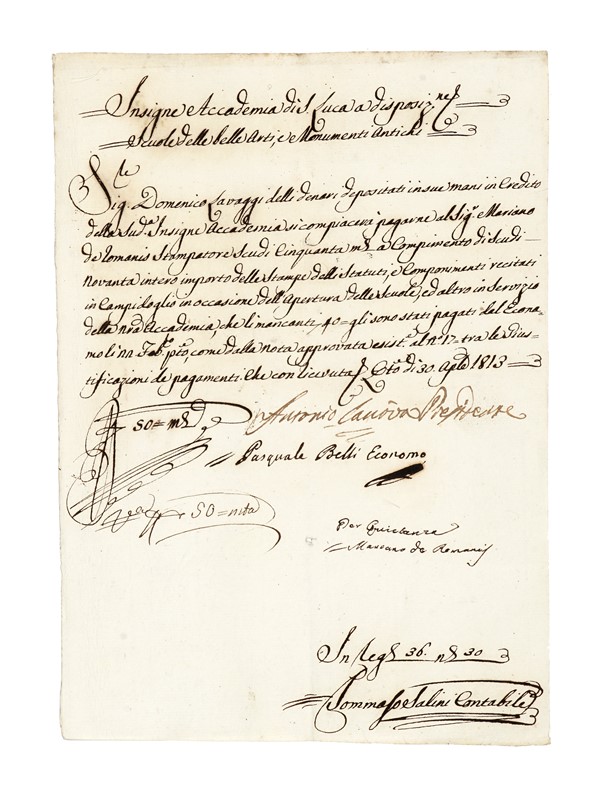 Insigne Accademia di S. Luca a disposiz.ne
Scuole delle belle Arti, e Monumenti Antichi
Sig. Domenico Lavaggi delli denari depositati in sue mani in Credito
della Sud.a Insigne Accademia si compiacerà pagarne al Sig.r Mariano
de Romanis Stampatore Scudi Cinquanta m.ta a Compimento di scudi
Novanta intero importo delle Stampe delli Statuti, e Componimenti recitati
in Campidoglio in occasione dell'Apertura delle Scuole, ed altro in Servizio
della nra Accademia, che li mancanti 40= gli sono stati pagati dal Econo-
mo li Feb.o pto, come dalla nota approvata esist.e al n.o 17= tra le Gius-
tificazioni de pagamenti. Che con ricevuta di 30. Aple 1813
50= m.ta
Antonio Canova Presidente
Pasquale Belli Economo
50= m.ta
Per Quietanza
Mariano de Romanis
In 36. 30
Tommaso Salini Contabile